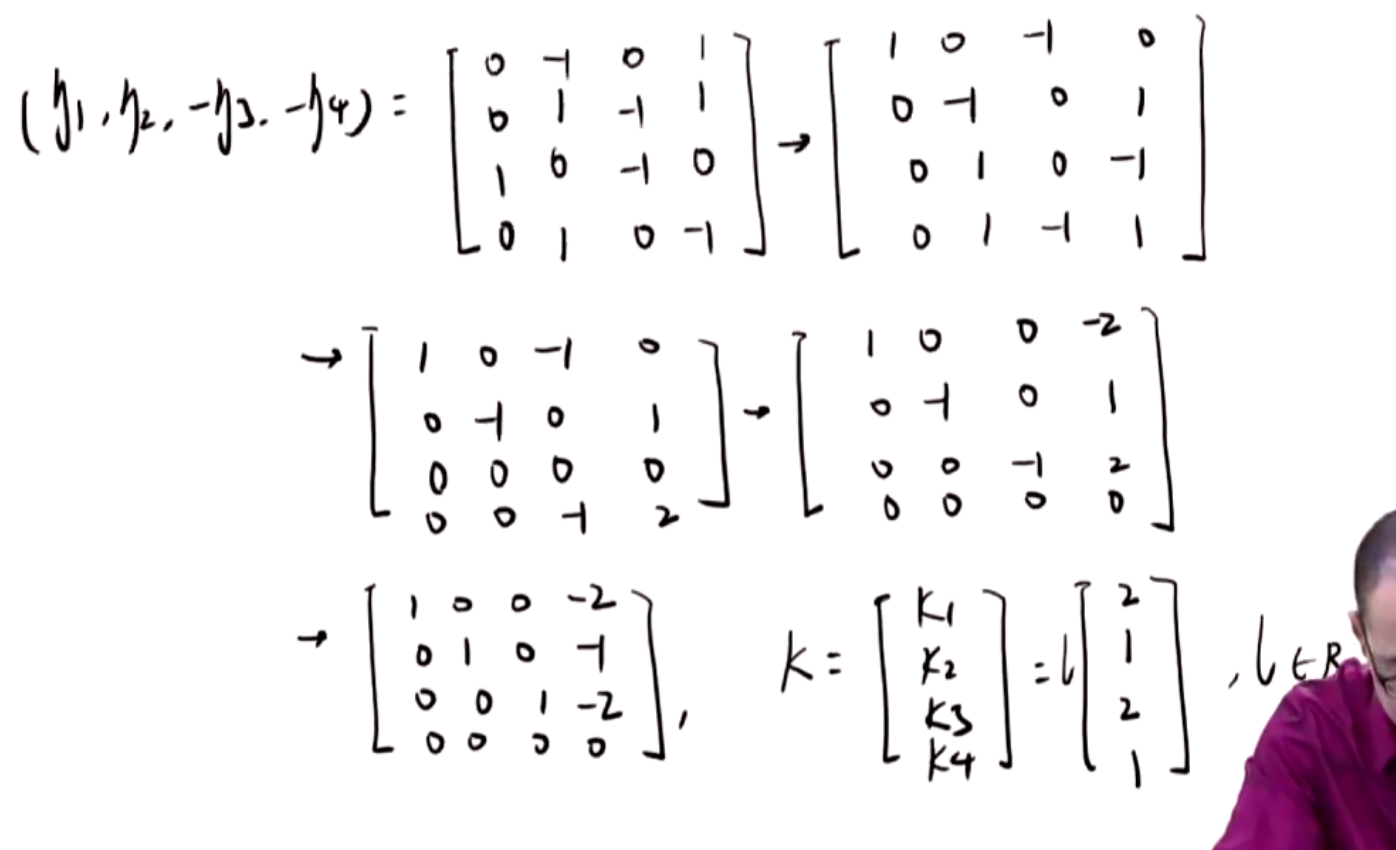 (η1, η2, -η3, -η4) = [0 -1 0 1; 0 1 -1 1; 1 0 -1 0; 0 1 0 -1] → [1 0 -1 0; 0 -1 0 1; 0 1 0 -1; 0 1 -1 1]
→ [1 0 -1 0; 0 -1 0 1; 0 0 0 0; 0 0 -1 2] → [1 0 0 -2; 0 -1 0 1; 0 0 -1 2; 0 0 0 0]
→ [1 0 0 -2; 0 1 0 -1; 0 0 1 -2; 0 0 0 0], k = [k1; k2; k3; k4] = l[2; 1; 2; 1], l ∈ R